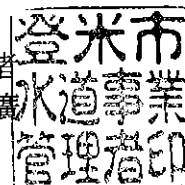 登米市
水道事業
管理者印